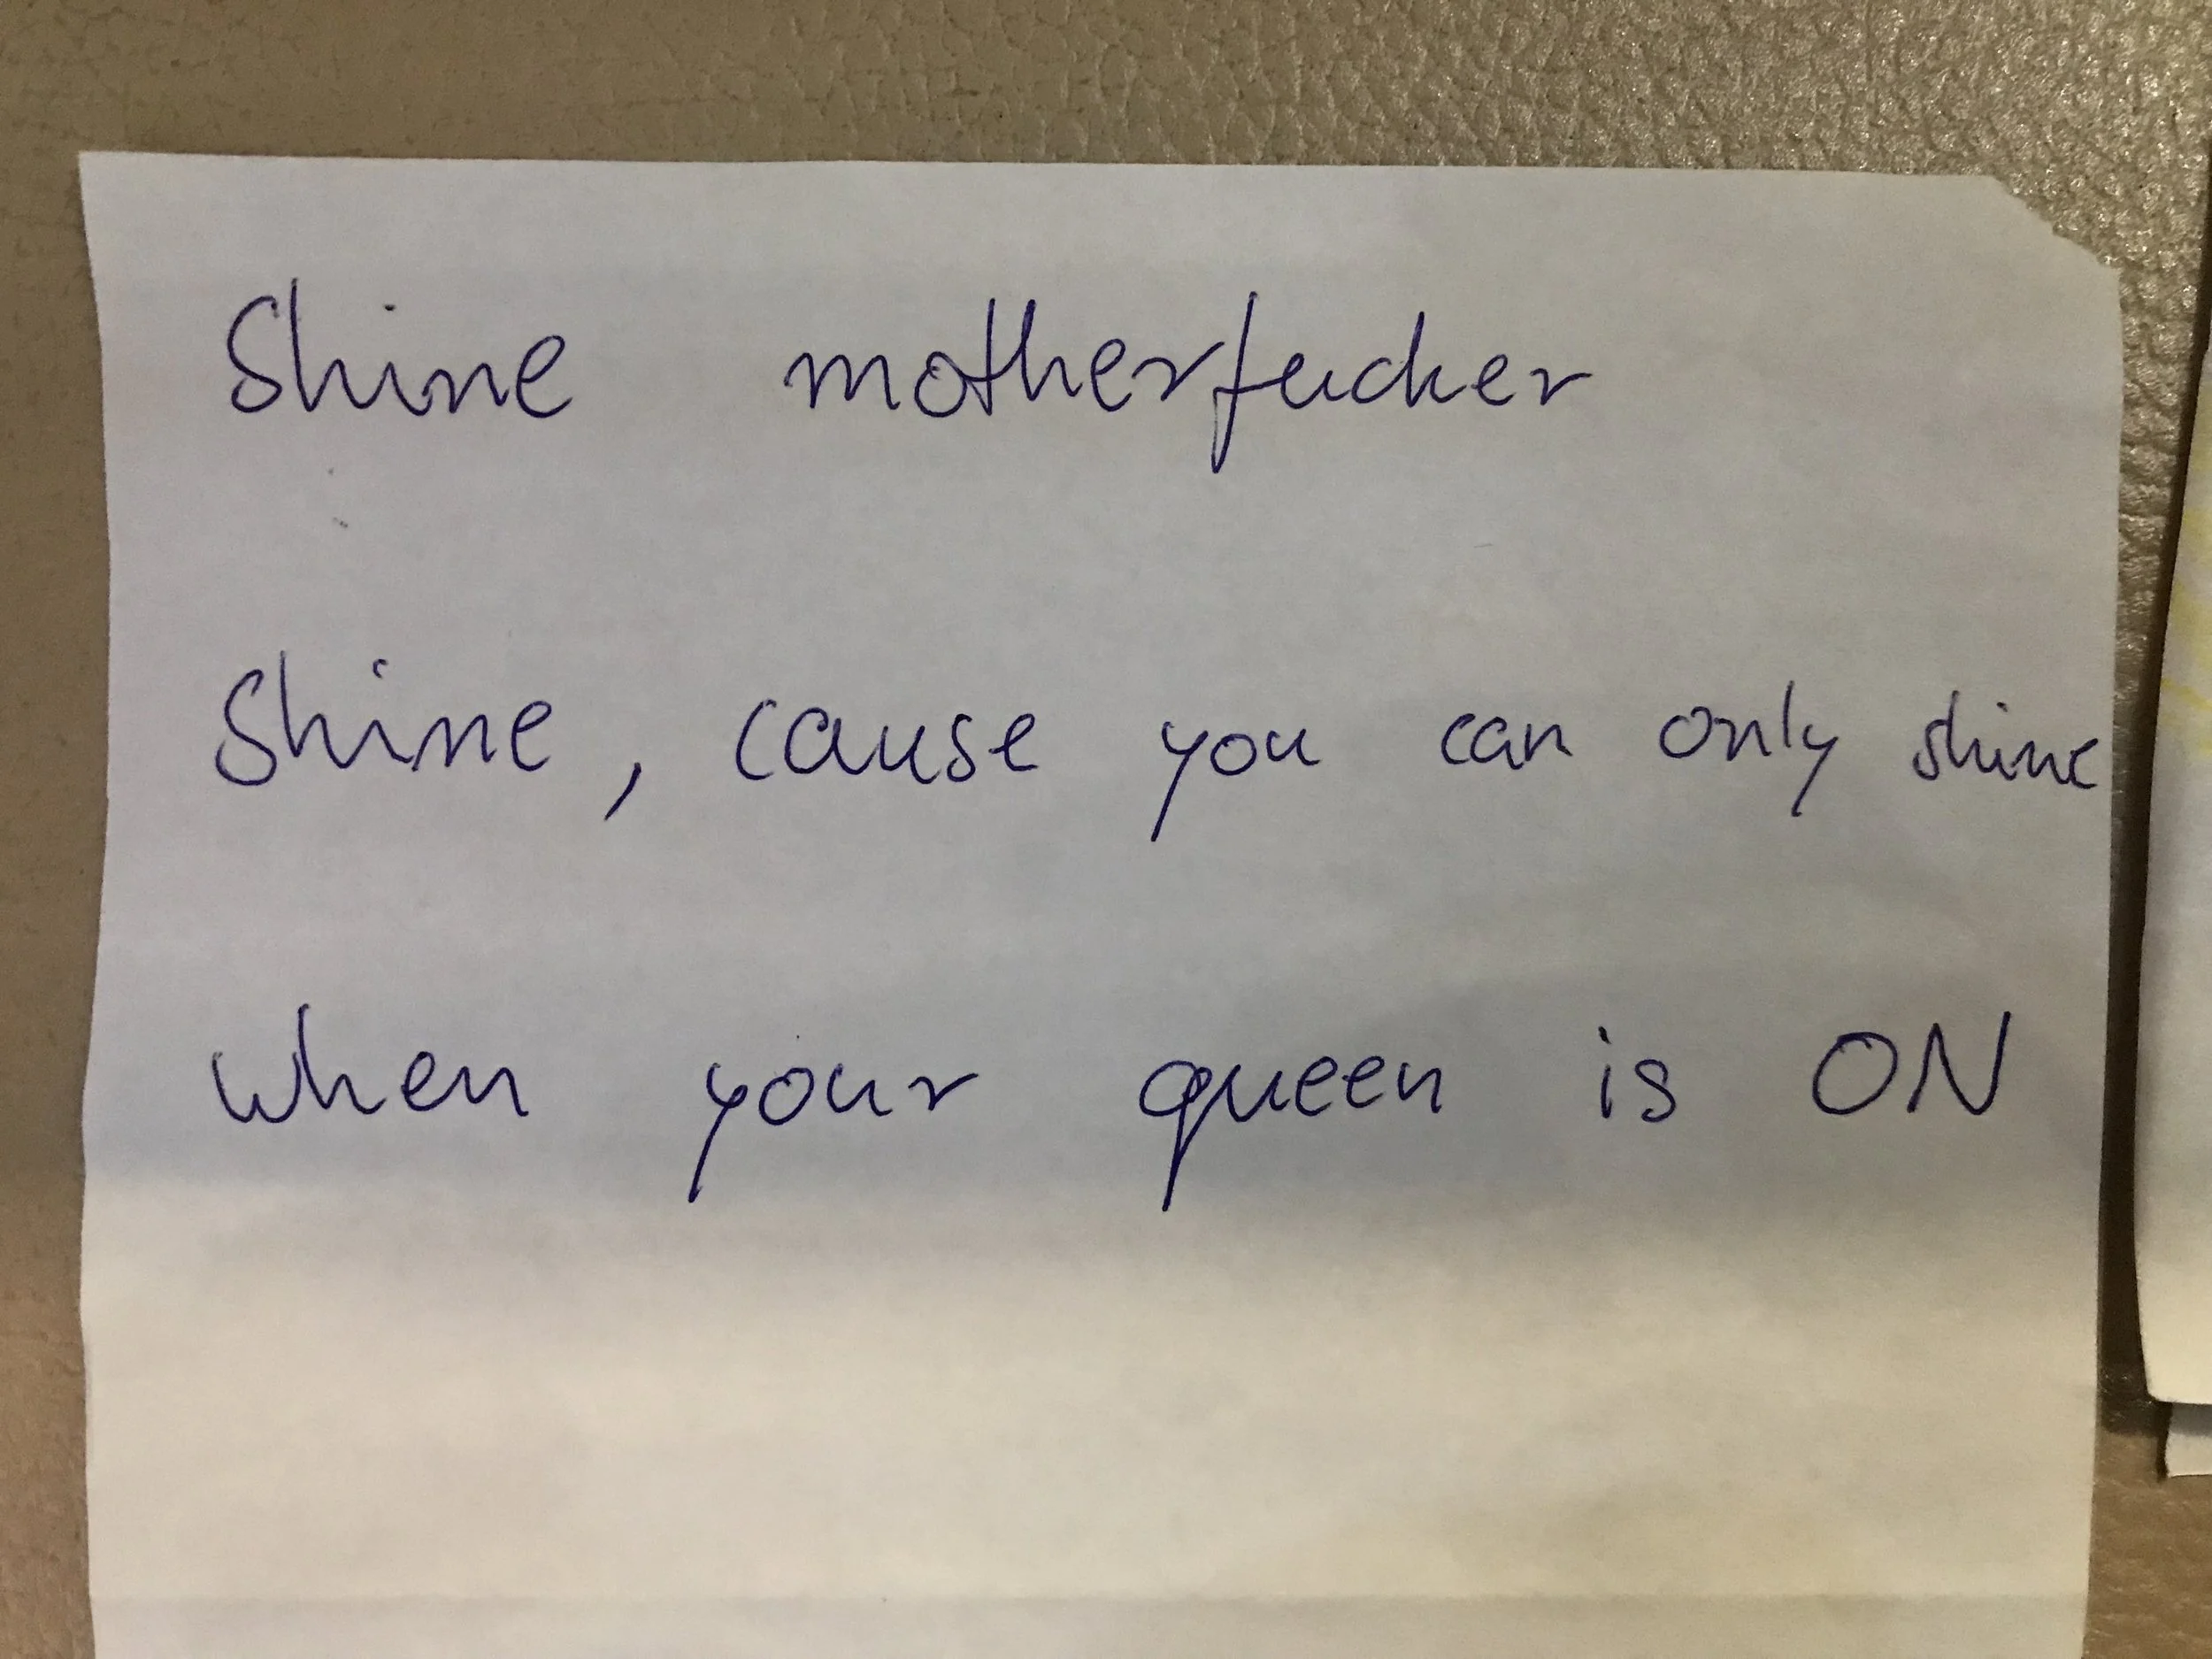 Shine motherfucker
Shine, cause you can only shine
when your queen is ON